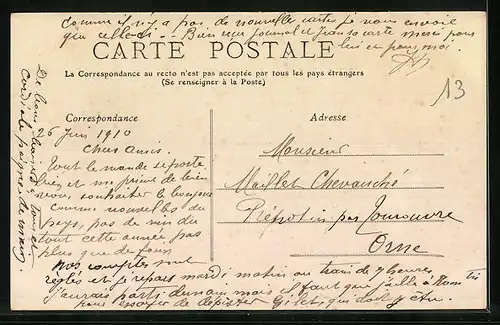 comme il n'y a pas de nouvelles cartes je vous envoie
que celle-ci -- Bien reçu journal et carte merci pour
lui et pour moi.
CARTE POSTALE
La Correspondance au recto n'est pas acceptée par tous les pays étrangers
(Se renseigner à la Poste)
13
Correspondance
Adresse
26 Juin 1910
Chers amis.
Tout le monde se porte
bien et me prient de bien
vous souhaiter le bonjour
comme nouvelles du
pays, pas de vin du
tout cette année pas
plus que de foin
nos comptes sont
réglés et je repars mardi matin au train de 9 heures
j'aurais parti demain mais il faut que j'aille à
pour essayer de dépister Gilet, qui doit y être.
Monsieur
Maillet Chevauché
Prépotin par Tourouvre
Orne
De bons baisers à tous et
cordiale poignée de main